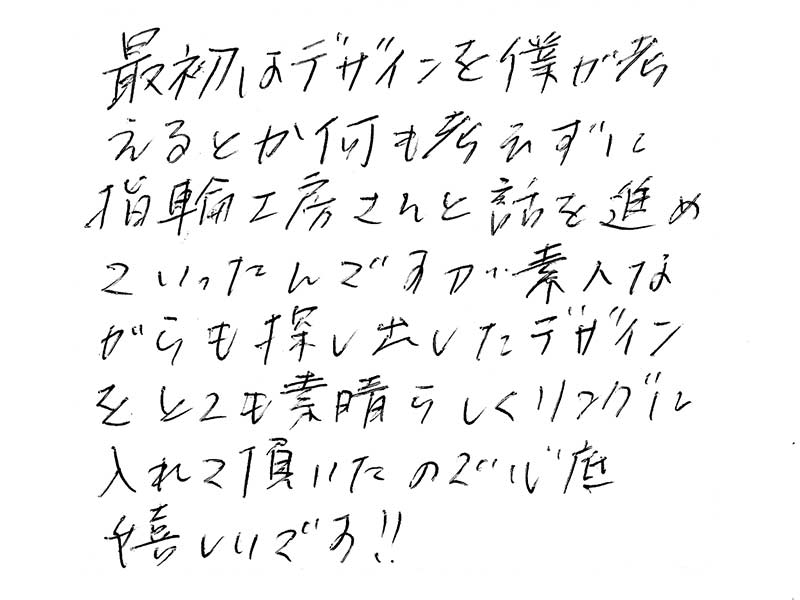 最初はデザインを僕が考
えるとか何も考えずに
指輪工房さんと話を進め
ていったんですが素人な
がらも探し出したデザイン
をとても素晴らしくリングに
入れて頂いたので心底
嬉しいです!!